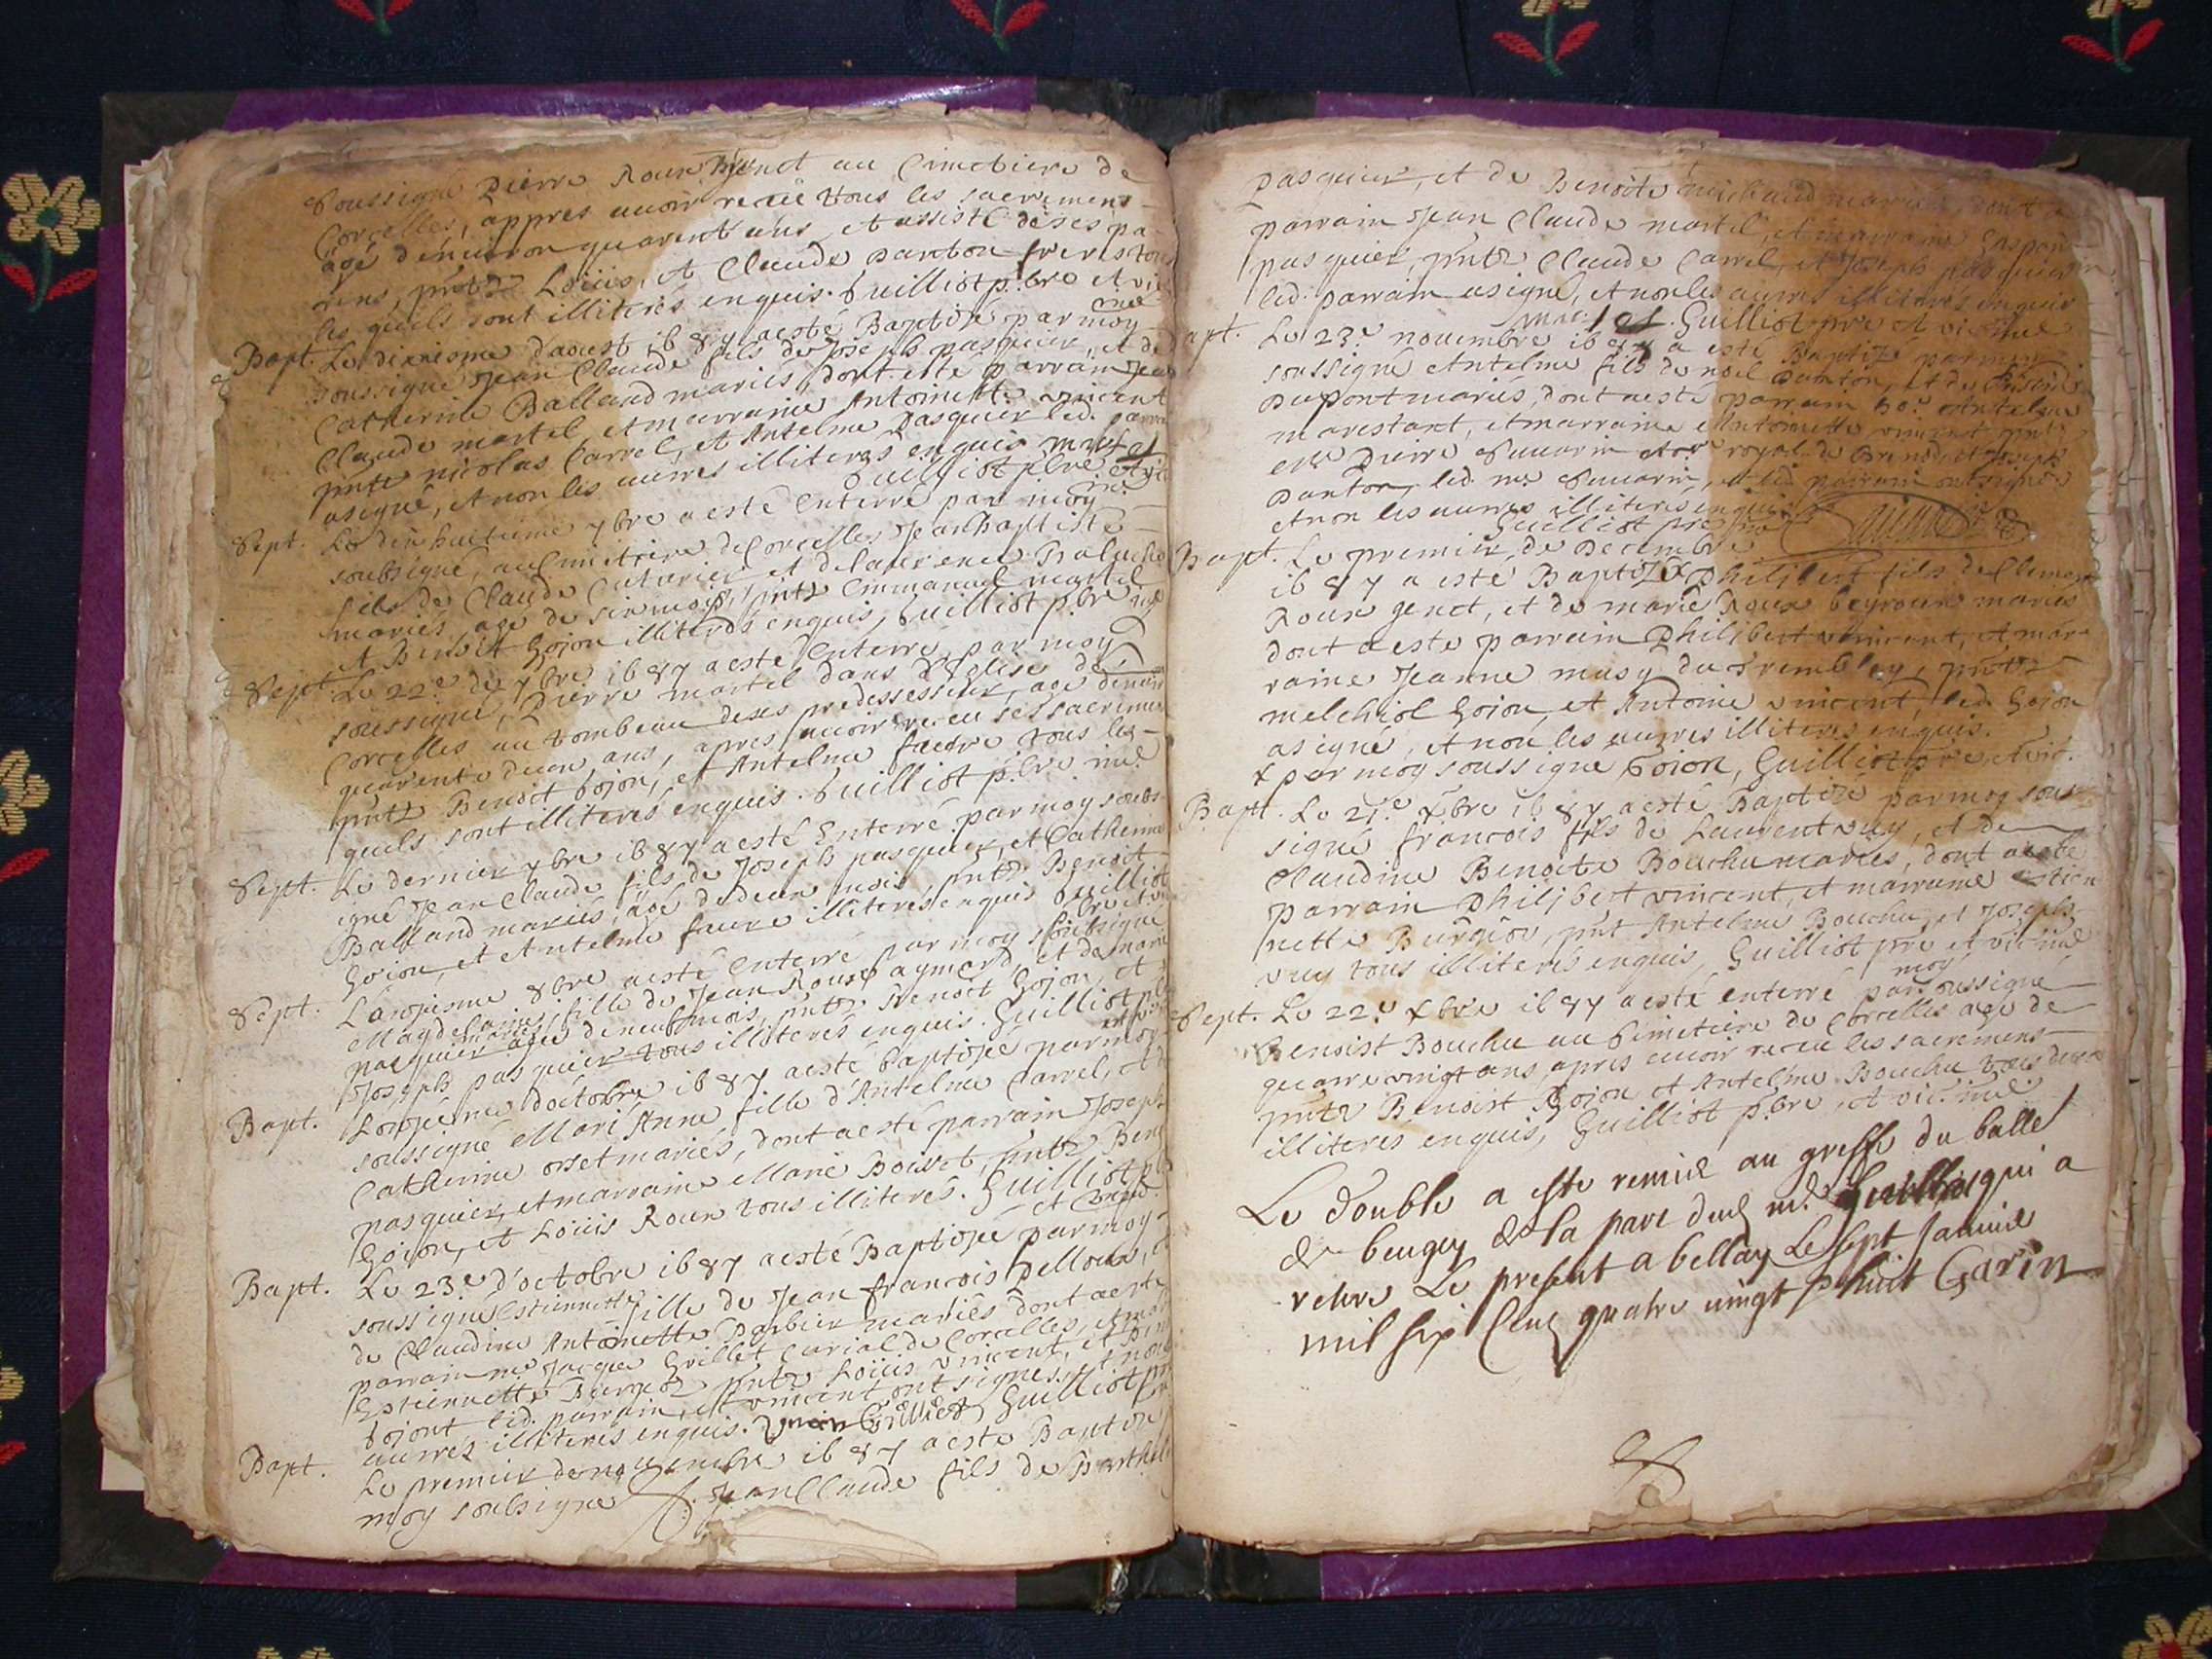 soussigné Pierre Roux Genet au Cimetiere de
Corcelles, appres avoir receü tous les sacremens
agé d'environ quarent ans, et assisté de ses pa-
rens, pntz Loüis, et Claude Panton freres tous
les quels sont illiterés enquis. Guilliot pbre et vic
me
Bapt. Le dixiesme d'aoust 1687 a esté Baptizé par moy
soussigné Jean Claude fils de Joseph pasquier, et de
Catherine Balland mariés, dont esté parrain Jean
Claude martel, et marraine Antoinette vincent
pntz nicolas Carrel, et Antelme Pasquier led. parra
a signé, et non les autres illiterés enquis
Guilliot pbre et vic
Sept. Le dix huitieme 7bre a esté Enterré par moy
soubsigné, au Cimitiere de Corcelles Jean Baptiste
fils de Claude Cutarier et de Laurence
mariés, agé de six mois, pntz Emmanuel martel
et Benoit Gojon illiterés enquis, Guilliot pbre
Sept. Le 22e de 7bre 1687 a esté Enterré par moy
soussigné, Pierre martel dans l'Eglise de
Corcelles au tombeau de ses predessesseur, agé d'environ
quarente deux ans, apres avoir receu ses sacremen
pntz Benoit Gojon, et Antelme faure tous les-
quels sont illiterés enquis. Guilliot pbre
Sept. Le dernier 7bre 1687 a esté Enterré par moy soubs-
igné Jean Claude fils de Joseph pasquier, et Catherine
Balland mariés, agé de deux mois, pntz Benoit
Gojon, et Antelme faure illiterés enquis Guilliot
Sept. L'onziesme 8bre a esté Enterré par moy soubsigné
Magdelaine, fille de Jean Roux aymard, et de marie
pasquier agée de neuf mois, pntz Benoit Gojon, et
mariés
Joseph pasquier tous illiterés enquis. Guilliot
Bapt. L'onzieme d'octobre 1687 a esté Baptizée par moy
soussigné Mari Anne fille d'Antelme Carrel, et de
Catherine orset mariés, dont a esté parrain Joseph
pasquier, et marraine Marie Boisset, pntz Beno
Gojon, et Loüis Roux tous illiterés. Guilliot
Bapt. Le 23e d'octobre 1687 a esté Baptizée par moy
soussigné Estiennette fille de Jean francois Pelloux,
de Claudine Antoinette Barbier mariés dont a esté
parrain me Jacque Grillet Curial de Corcelles, et
Estiennette Burgez pntz Loüis vincent, et
Gojont led. parrain, et vincent ont signés, et non
autres illiterés enquis. Guilliot
Bapt. Le premier de novembre 1687 a esté Baptizé
moy soubsigné Jean Claude fils de Barthel
pasquier, et de Benoite michaud mariés, dont a
parrain Jean Claude martel, et marraine Gaspar
pasquier, pntz Claude Carrel, et Joseph pasquier
led. parrain a signé, et non les autres illiterés enquis
Guilliot pre et vic
Bapt. Le 23e novembre 1687 a esté Baptizé par moy
soussigné Antelme fils de noel Panton, et de
Dupont mariés, dont a esté parrain Antelme
marestant, et marraine Antoinette vincent pntz
Pierre Savarin royal de Brens et Joseph
Panton, led. me Savarin, et led. parrain ont signés
et non les autres illiterés enquis
Guilliot pre
Bapt. Le premier de Decembre
1687 a esté Baptizé x Philibert fils de Clement
Roux genet, et de marie Roux beyroux mariés
dont a esté parrain Philibert vincent, et mar-
raine Jeanne musy du Trembley, pntz
melchiol Gojon, et Antoine vincent, led. Gojon
a signé, et non les autres illiterés enquis.
x par moy soussigné Gojon, Guilliot pre et vic.
Bapt. Le 21e xbre 1687 a esté Baptizé par moy sous-
signé francois fils de Laurent vuy, et de
Claudine Benoite Bouchu mariés, dont a esté
parrain Philibert vincent, et marraine Estien
nette Burgeo, pnt Antelme Bouchu, et Joseph
vuy tous illiterés enquis, Guilliot pre et vic
moy
Sept. Le 22e xbre 1687 a esté enterré par soussigné
Benoist Bouchu au Cimetiere de Corcelles agé de
quatre vingt ans, apres avoir receu les sacremens
pntz Benoist Gojon, et Antelme Bouchu tous deux
illiterés enquis, Guilliot pbre, et vic.
Le double a este remis au greffe du balle
de beugey de la part dud. me. Guilliot qui a
retiré Le present a bellay Le sept Janvier
mil six Cent quatre vingt huict Garin